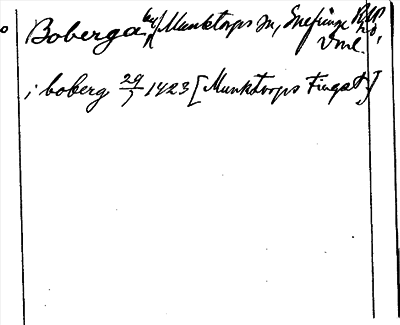 Boberga by Munktorps sn, Snefringe hd,
Vml.
i boberg 29/7 1423 [Munktorps Tingst.]